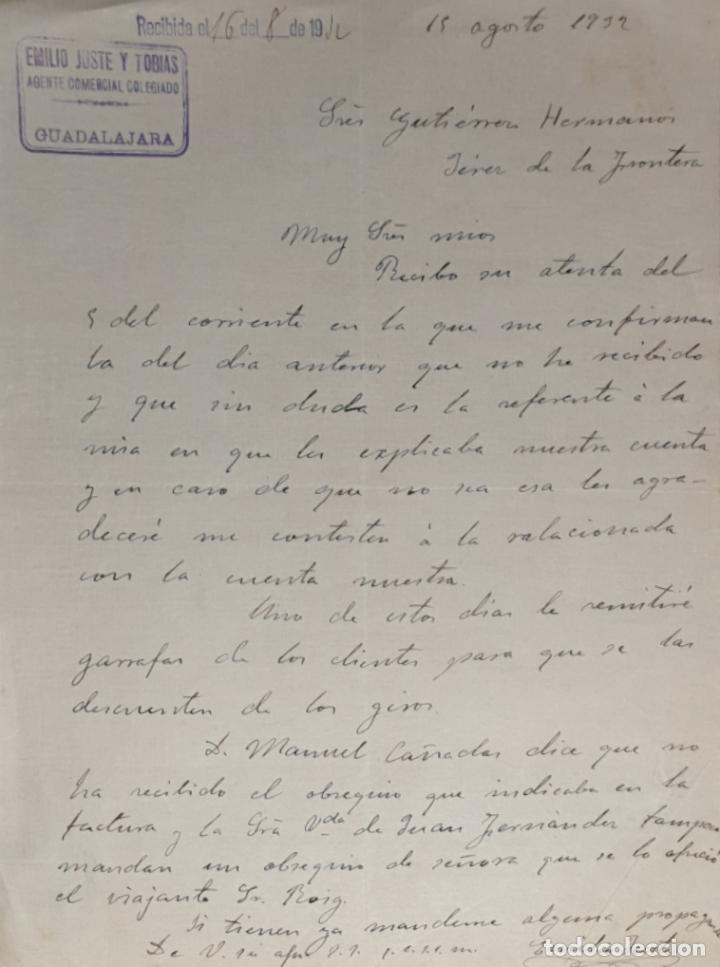 Recibida el 16 del 8 de 1932
15 agosto 1932
EMILIO JUSTE Y TOBIAS
AGENTE COMERCIAL COLEGIADO
GUADALAJARA
Sres Gutiérrez Hermanos
Jérez de la Frontera
Muy Sres mios
Recibo su atenta del
5 del corriente en la que me confirman
la del dia anterior que no he recibido
y que sin duda es la referente à la
mia en que les explicaba nuestra cuenta
y en caso de que no sea esa les agra-
deceré me contesten à la relacionada
con la cuenta nuestra.
Uno de estos dias le remitiré
garrafas de los clientes para que se las
descuenten de los giros.
D. Manuel Cañadas dice que no
ha recibido el obsequio que indicaba en la
factura y la Sra Vda de Juan Fernández tampoco
mandan un obsequio de señora que se lo ofreció
el viajante Sr. Roig.
Si tienen ya mandeme alguna propaganda
De V. su afmo s.s. q.e.s.m.
todocoleccion
todocoleccion.net